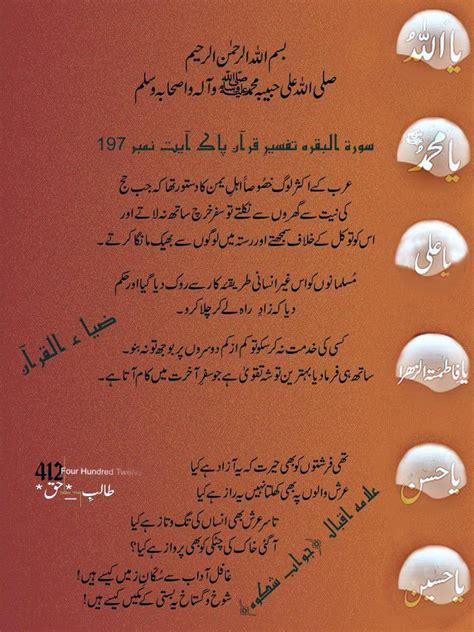 بسم اللہ الرحمٰن الرحیم
صلی اللہ علی حبیبہ محمدﷺ وآلہ واصحابہ وسلم
سورۃ البقرہ تفسیر قرآن پاک آیت نمبر 197
عرب کے اکثر لوگ خصُوصاً اہلِ یمن کا دستور تھا کہ جب حج
کی نیت سے گھروں سے نکلتے تو سفر خرچ ساتھ نہ لاتے اور
اس کو توکل کے خلاف سمجھتے اور رستہ میں لوگوں سے بھیک مانگا کرتے۔
مُسلمانوں کو اس غیر انسانی طریقۂ کار سے روک دیا گیا اور حکم
دیا کہ زادِ راہ لے کر چلا کرو۔
کسی کی خدمت نہ کر سکو تو کم از کم دوسروں پر بوجھ تو نہ بنو۔
ساتھ ہی فرما دیا بہترین توشہ تقویٰ ہے جو سفرِ آخرت میں کام آتا ہے۔
ضیاء القرآن
تھی فرشتوں کو بھی حیرت کہ یہ آواز ہے کیا
عرش والوں پہ بھی کھلتا نہیں یہ راز ہے کیا
تا سرِ عرش بھی انساں کی تگ و تاز ہے کیا
آ گئی خاک کی چٹکی کو بھی پرواز ہے کیا؟
غافل آداب سے سُکّانِ زمیں کیسے ہیں!
شوخ و گستاخ یہ پستی کے مکیں کیسے ہیں!
علامہ اقبال
جواب شکوہ
412
Four Hundred Twelve
*طالبِ_حق*
یا اللہ
یا محمد
یا علی
یا فاطمۃ الزھرا
یا حسن
یا حسین